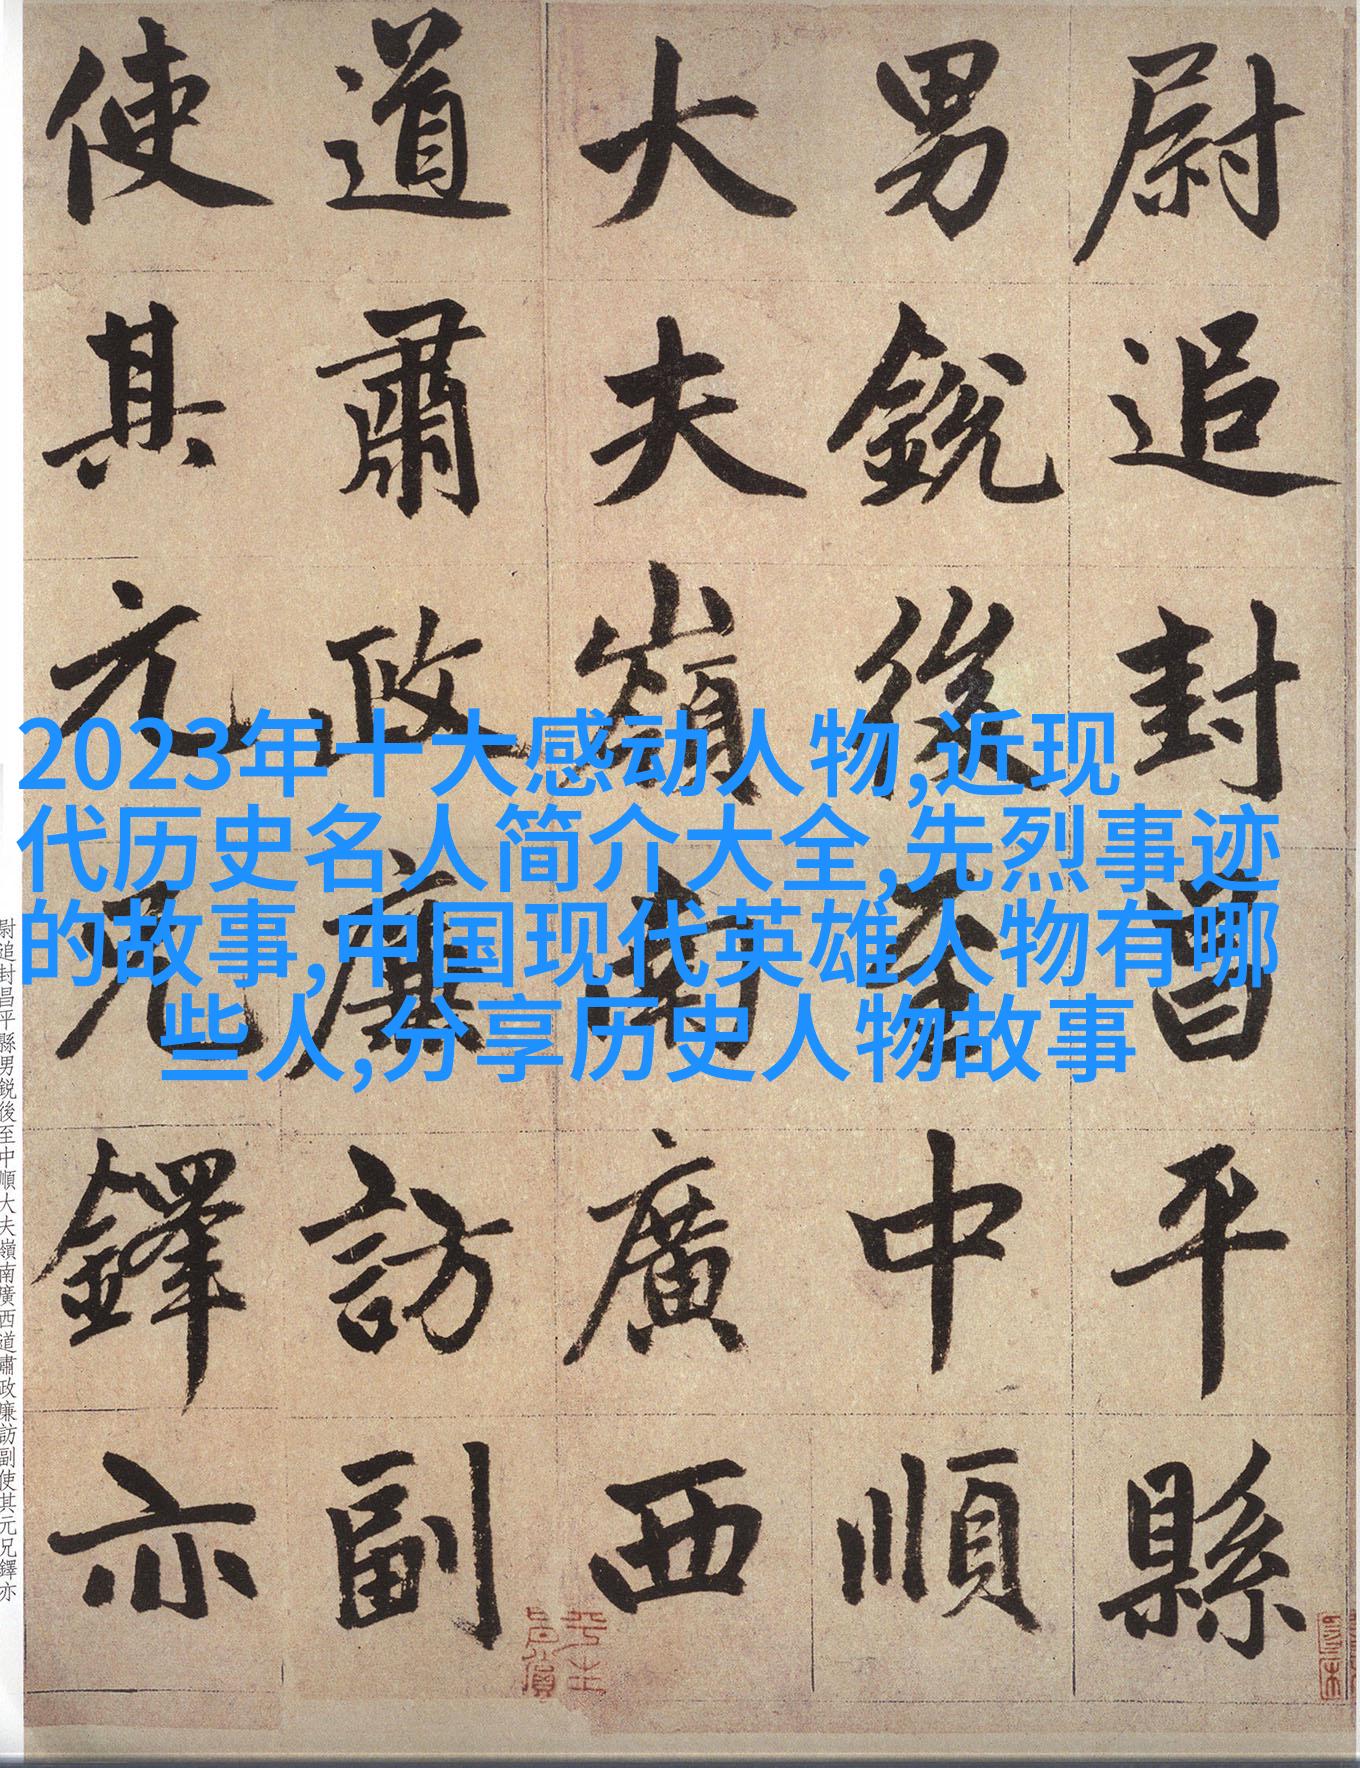 尉追封昌平縣
男銳後至中順
大夫嶺南廣西
道肅政廉訪副
使其元兄鐸亦
2023年十大感动人物,近现
代历史名人简介大全,先烈事迹
的故事,中国现代英雄人物有哪
些人,分享历史人物故事
尉追封昌平縣男銳後至中順大夫嶺南廣西道肅政廉訪副使其元兄鐸亦